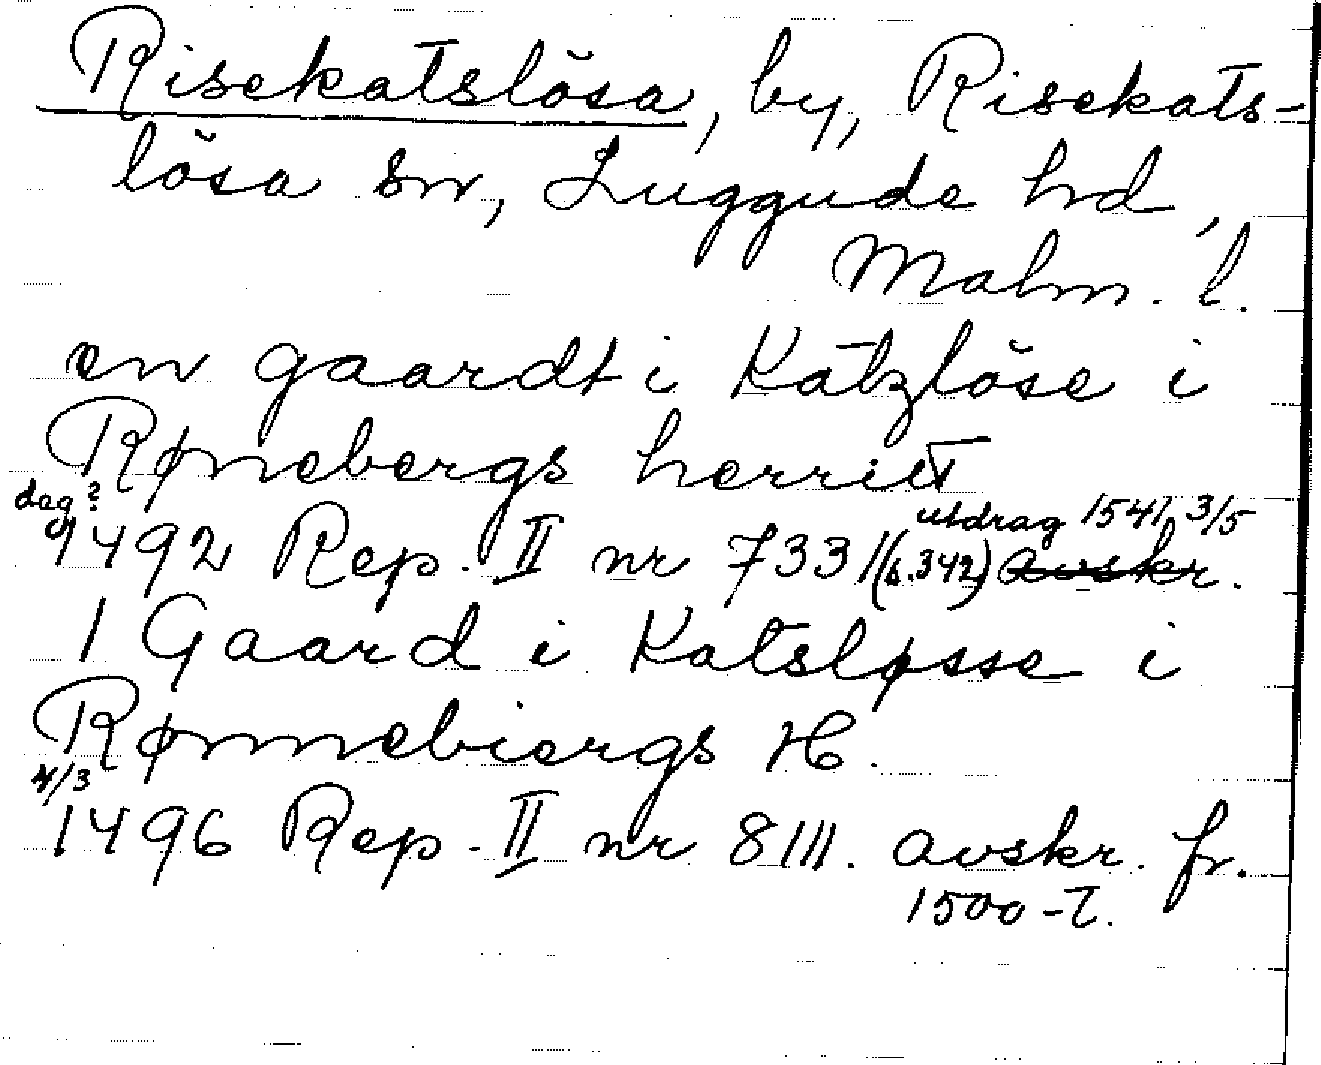 Risekatslösa, by, Risekats-
lösa sn, Luggude hd,
Malm. l.
en gaardt i Katzlöse i
Rønebergs herritt
dag?
utdrag 1541 3/5
1492 Rep. II nr 7331 (s.342) avskr.
1 Gaard i Katsløsse i
Rønnebiergs H.
4/3
1496 Rep. II nr 8111. avskr. fr.
1500-t.